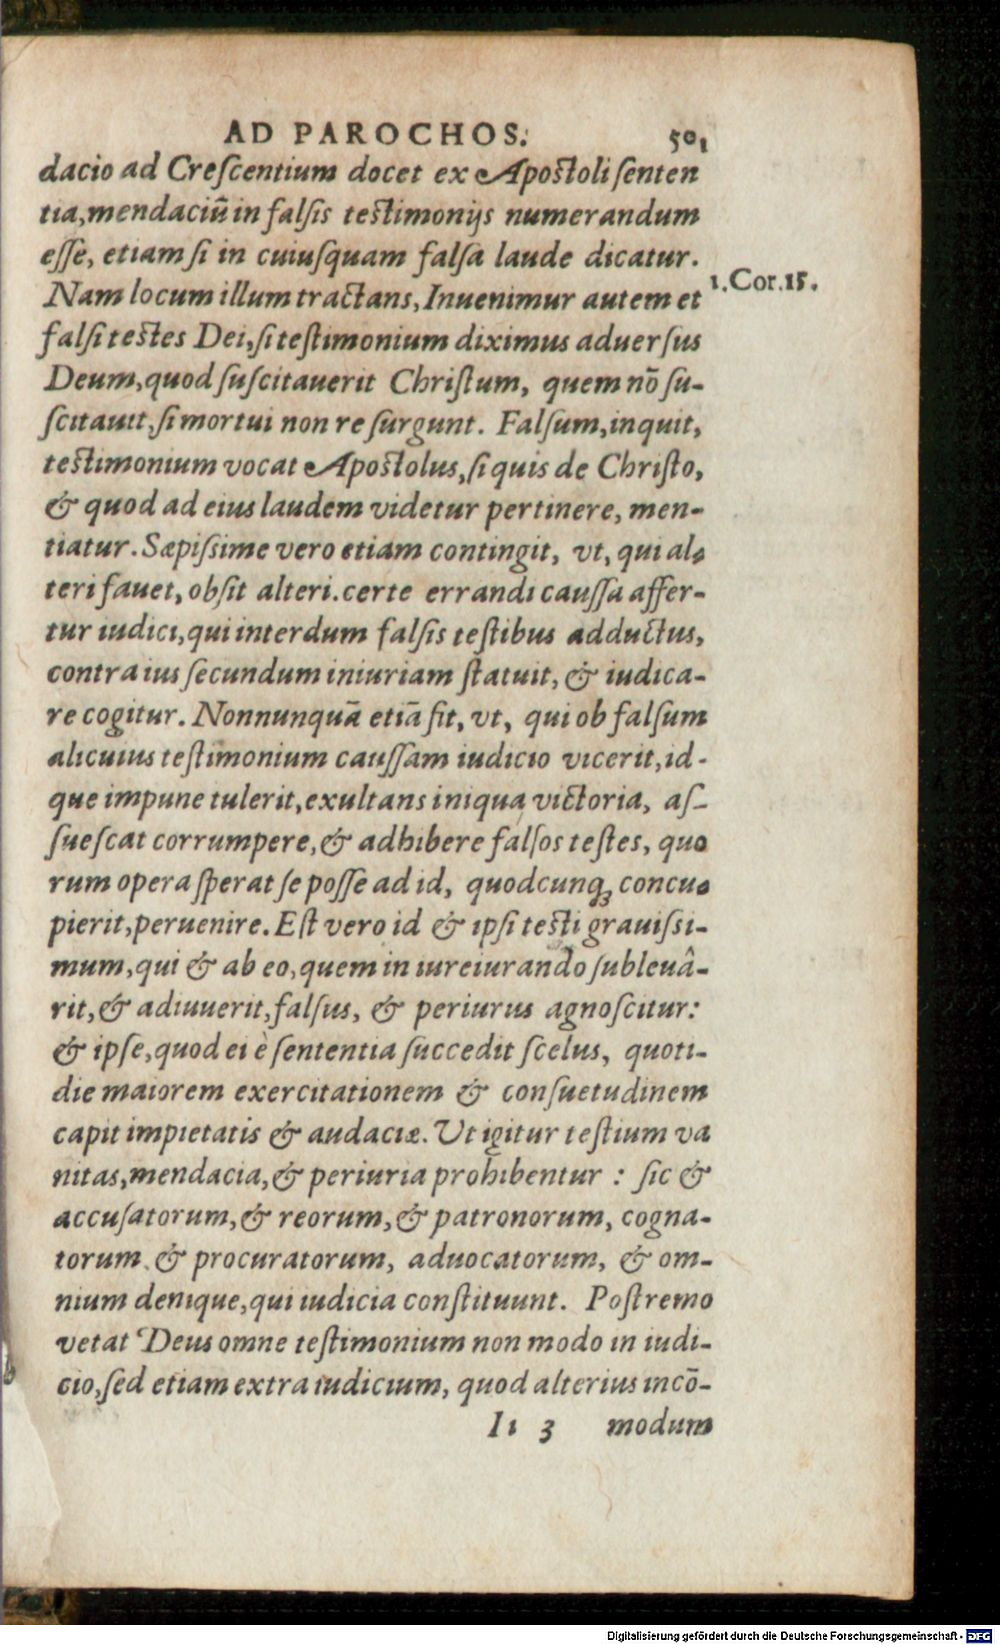 AD PAROCHOS. 501
dacio ad Creſcentium docet ex Apoſtoli ſenten
tia, mendaciū in falſis teſtimonijs numerandum
eſſe, etiam ſi in cuiuſquam falſa laude dicatur.
Nam locum illum tractans, Inuenimur autem et
1.Cor.15.
falſi teſtes Dei, ſi teſtimonium diximus aduerſus
Deum, quod ſuſcitauerit Chriſtum, quem nō ſu-
ſcitauit, ſi mortui non reſurgunt. Falſum, inquit,
teſtimonium vocat Apoſtolus, ſi quis de Chriſto,
& quod ad eius laudem videtur pertinere, men-
tiatur. Sæpiſsime vero etiam contingit, vt, qui al-
teri fauet, obſit alteri. certe errandi cauſſa affer-
tur iudici, qui interdum falſis teſtibus adductus,
contra ius ſecundum iniuriam ſtatuit, & iudica-
re cogitur. Nonnunquā etiā fit, vt, qui ob falſum
alicuius teſtimonium cauſſam iudicio vicerit, id-
que impune tulerit, exultans iniqua victoria, aſ-
ſueſcat corrumpere, & adhibere falſos teſtes, quo
rum opera ſperat ſe poſſe ad id, quodcunq; concu-
pierit, peruenire. Eſt vero id & ipſi teſti grauiſsi-
mum, qui & ab eo, quem in iureiurando ſubleuâ-
rit, & adiuuerit, falſus, & periurus agnoſcitur:
& ipſe, quod ei è ſententia ſuccedit ſcelus, quoti-
die maiorem exercitationem & conſuetudinem
capit impietatis & audaciæ. Ut igitur teſtium va
nitas, mendacia, & periuria prohibentur : ſic &
accuſatorum, & reorum, & patronorum, cogna-
torum. & procuratorum, aduocatorum, & om-
nium denique, qui iudicia conſtituunt. Poſtremo
vetat Deus omne teſtimonium non modo in iudi-
cio, ſed etiam extra iudicium, quod alterius incō-
Ii 3 modum
Digitalisierung gefördert durch die Deutsche Forschungsgemeinschaft - DFG